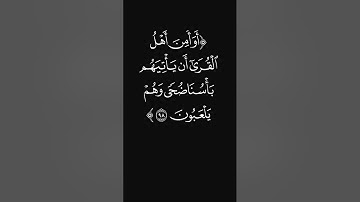 ﴿أَوَأَمِنَ أَهْلُ
ٱلْقُرَىٰٓ أَن يَأْتِيَهُم
بَأْسُنَا ضُحًى وَهُمْ
يَلْعَبُونَ ٩٨﴾